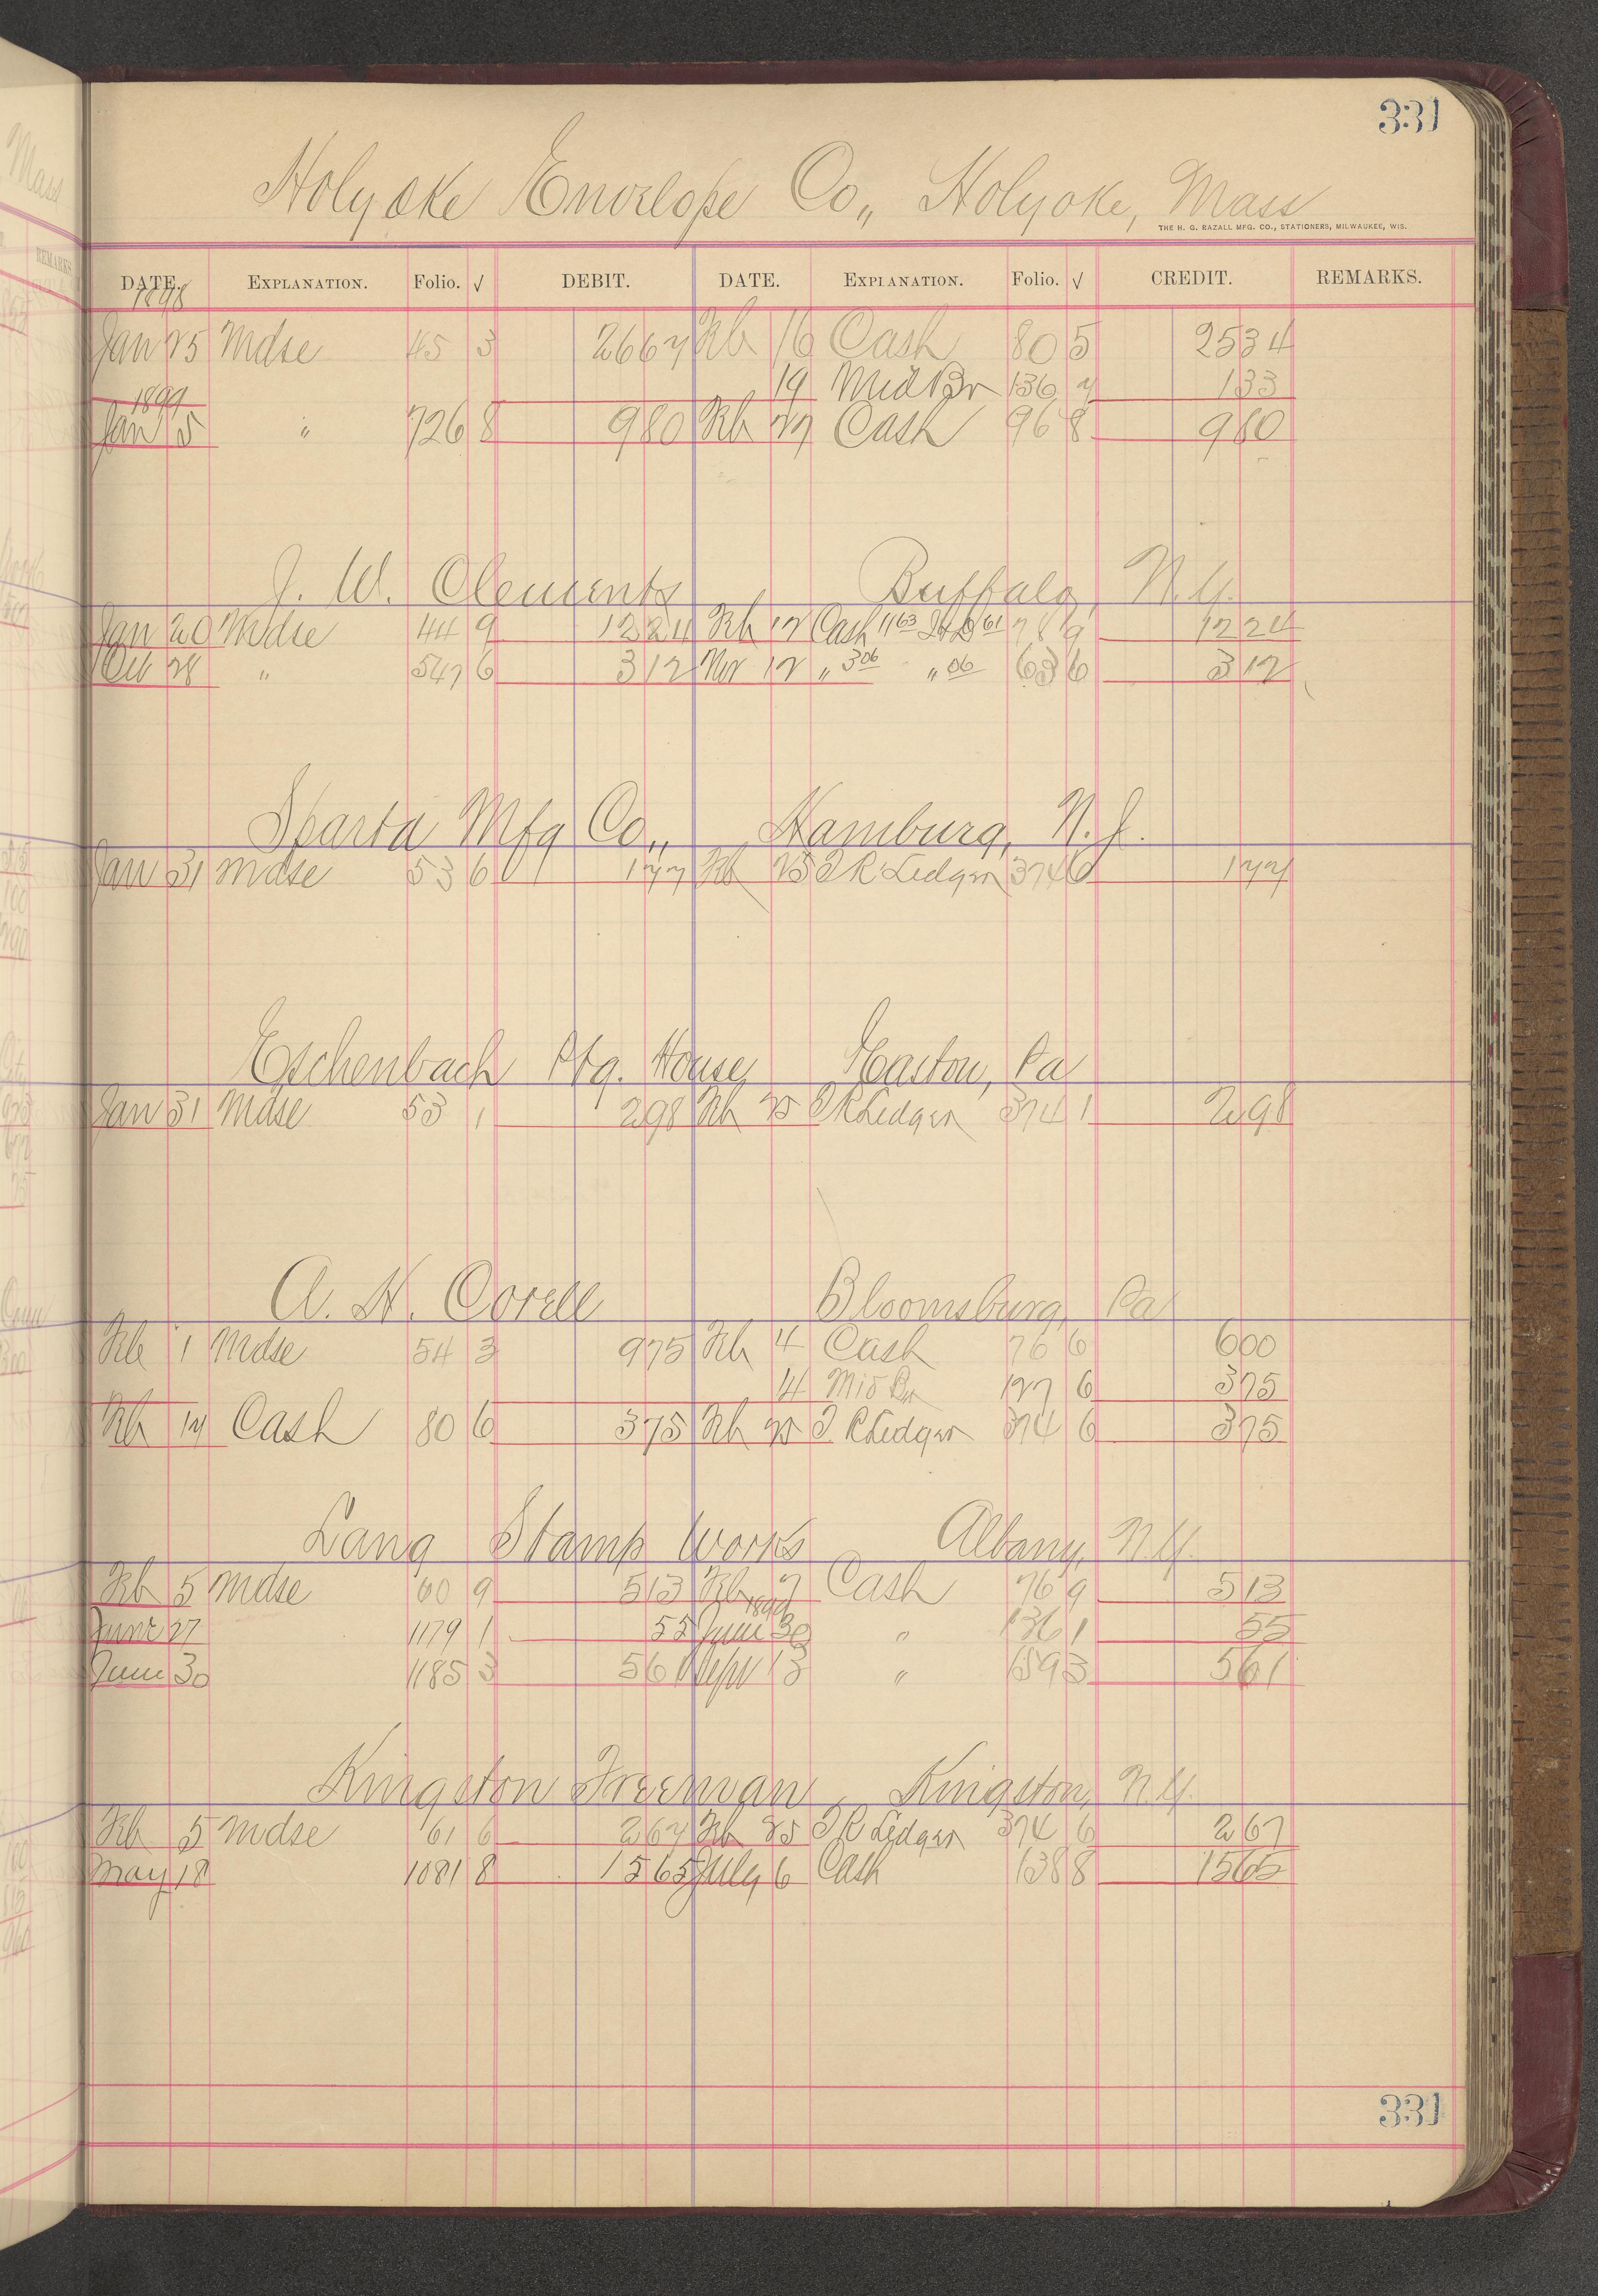 331
Holyoke Envelope Co., Holyoke, Mass
THE H. G. RAZALL MFG. CO., STATIONERS, MILWAUKEE, WIS.
DATE. EXPLANATION. Folio. √ DEBIT. DATE. EXPLANATION. Folio. √ CREDIT. REMARKS.
1898
Jan 25 Mdse 45 3 2667 Feb 16 Cash 80 5 2534
19 Mid Br 136 7 133
1899
Jan 5 " 726 8 980 Feb 27 Cash 96 8 980
J. W. Clements Buffalo, N.Y.
Jan 20 Mdse 44 9 1224 Feb 12 Cash 1163 61 78 9 1224
Oct 28 " 547 6 312 Nov 12 " 306 " 06 63 6 312
Sparta Mfg Co., Hamburg, N.J.
Jan 31 Mdse 53 6 177 Feb 25 P R Ledger 374 6 177
Eschenbach Ptg. House Easton, Pa
Jan 31 Mdse 53 1 298 Feb 25 P R Ledger 374 1 298
A. H. Corell Bloomsburg, Pa
Feb 1 Mdse 54 3 975 Feb 4 Cash 76 6 600
14 Mid Br 127 6 375
Feb 14 Cash 80 6 375 Feb 25 P R Ledger 374 6 375
Lang Stamp Works Albany, N.Y.
Feb 5 Mdse 60 9 513 Feb 7 Cash 76 9 513
1899
June 27 1179 1 55 June 30 " 136 1 55
June 30 1185 3 561 Sept 13 " 159 3 561
Kingston Freeman, Kingston, N.Y.
Feb 5 Mdse 61 6 267 Feb 25 P R Ledger 374 6 267
May 18 1081 8 1565 July 6 Cash 138 8 1565
331